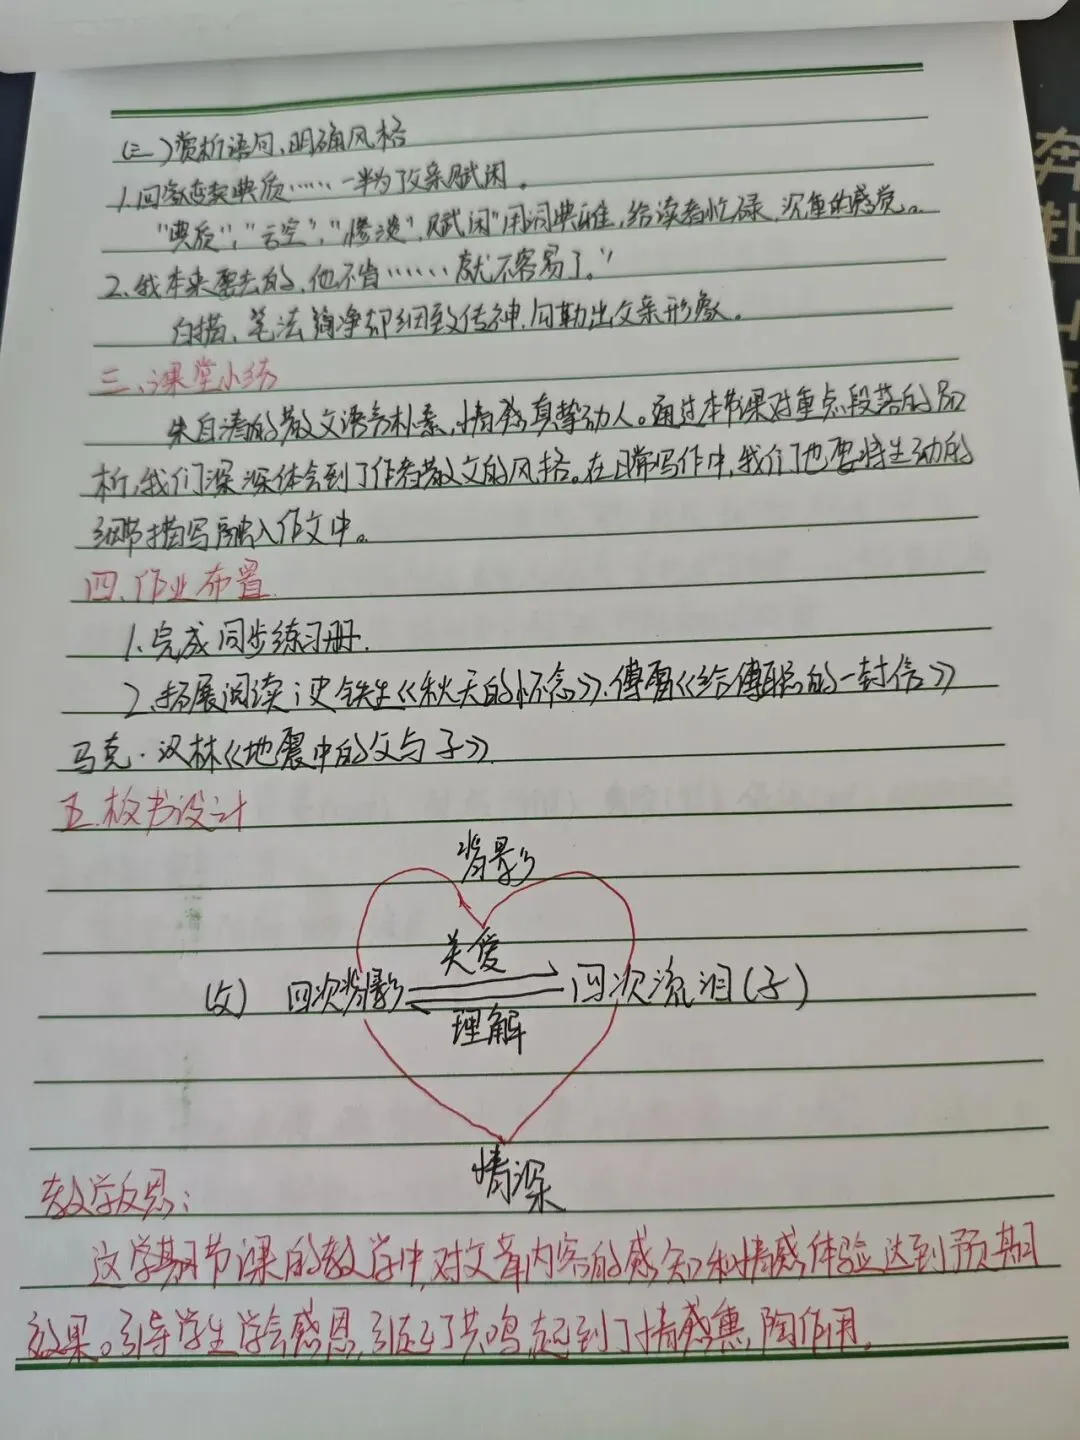 (三)赏析语句,明确风格
1.回家变卖典质……一半为了父亲赋闲。
"典质","亏空","惨淡","赋闲"用词典雅,给读者忙碌,沉重的感觉。
2.我本来要去的,他不肯……就不容易了。"
白描、笔法简净却细致传神,勾勒出父亲形象。
三、课堂小结
朱自清的散文语言朴素,情感真挚动人。通过本节课对重点段落的品
析,我们深深体会到了作者散文的风格。在日常写作中,我们也要将生动的
细节描写融入作文中。
四.作业布置
1.完成同步练习册.
2.拓展阅读:史铁生《秋天的怀念》.傅雷《给傅聪的一封信》
马克·汉林《地震中的父与子》
五.板书设计
背影
关爱
(父) 四次背影 四次流泪(子)
理解
情深
教学反思:
这学期节课的教学中,对文章内容的感知和情感体验达到预期
效果。引导学生学会感恩,引起了共鸣,起到了情感熏陶作用。
奔
赴
山